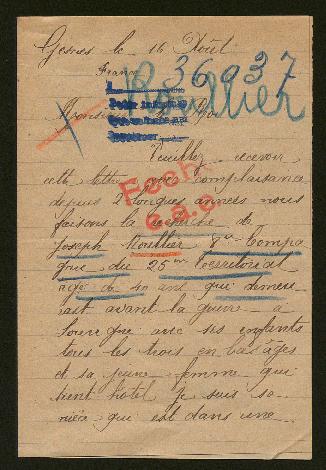 Gesnes le 16 Août
France
36037
Roullier
Monsieur
Veuillez recevoir
cette lettre avec complaisance
depuis 2 longues années nous
faisons la recherche de
Joseph Roullier 8me Compa
gnie du 25me Territorial
agé de 40 ans qui demeu
rait avant la guerre a
avec ses enfants
tous les trois en bas âges
et sa jeune femme qui
tient hôtel je suis sa
mère qui est dans une